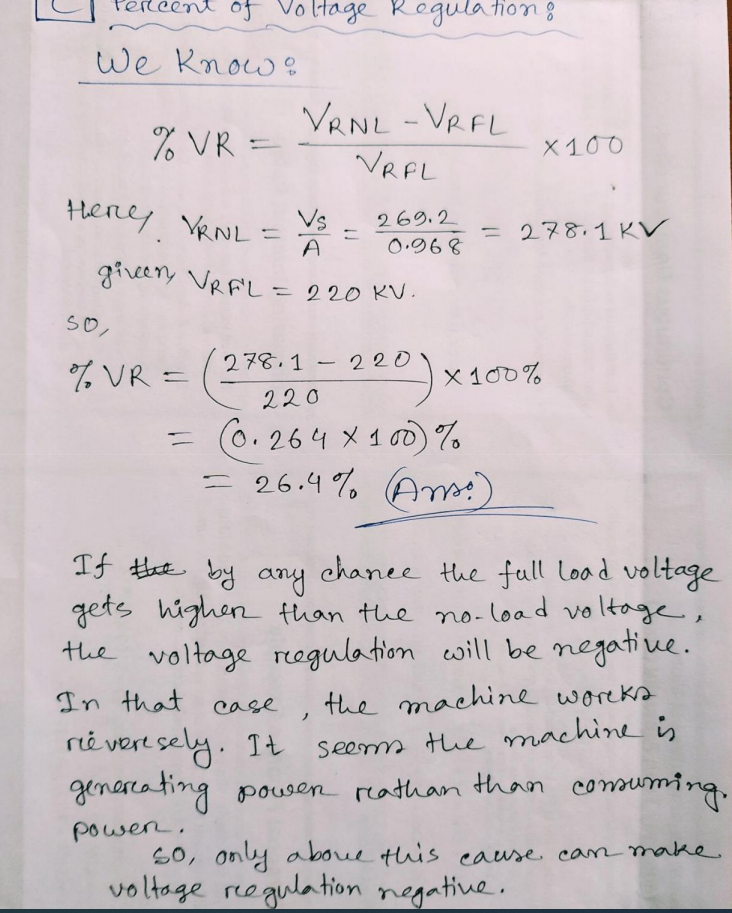 C Percent of Voltage Regulation:
We Know:
% VR = (VRNL - VRFL) / VRFL × 100
Here, VRNL = Vs / A = 269.2 / 0.968 = 278.1 KV
given, VRFL = 220 KV.
so,
% VR = (278.1 - 220 / 220) × 100%
= (0.264 × 100) %
= 26.4% (Ans:)
If the by any chance the full load voltage
gets higher than the no-load voltage,
the voltage regulation will be negative.
In that case, the machine works
reversely. It seems the machine is
generating power rathan than consuming
power.
so, only above this cause can make
voltage regulation negative.